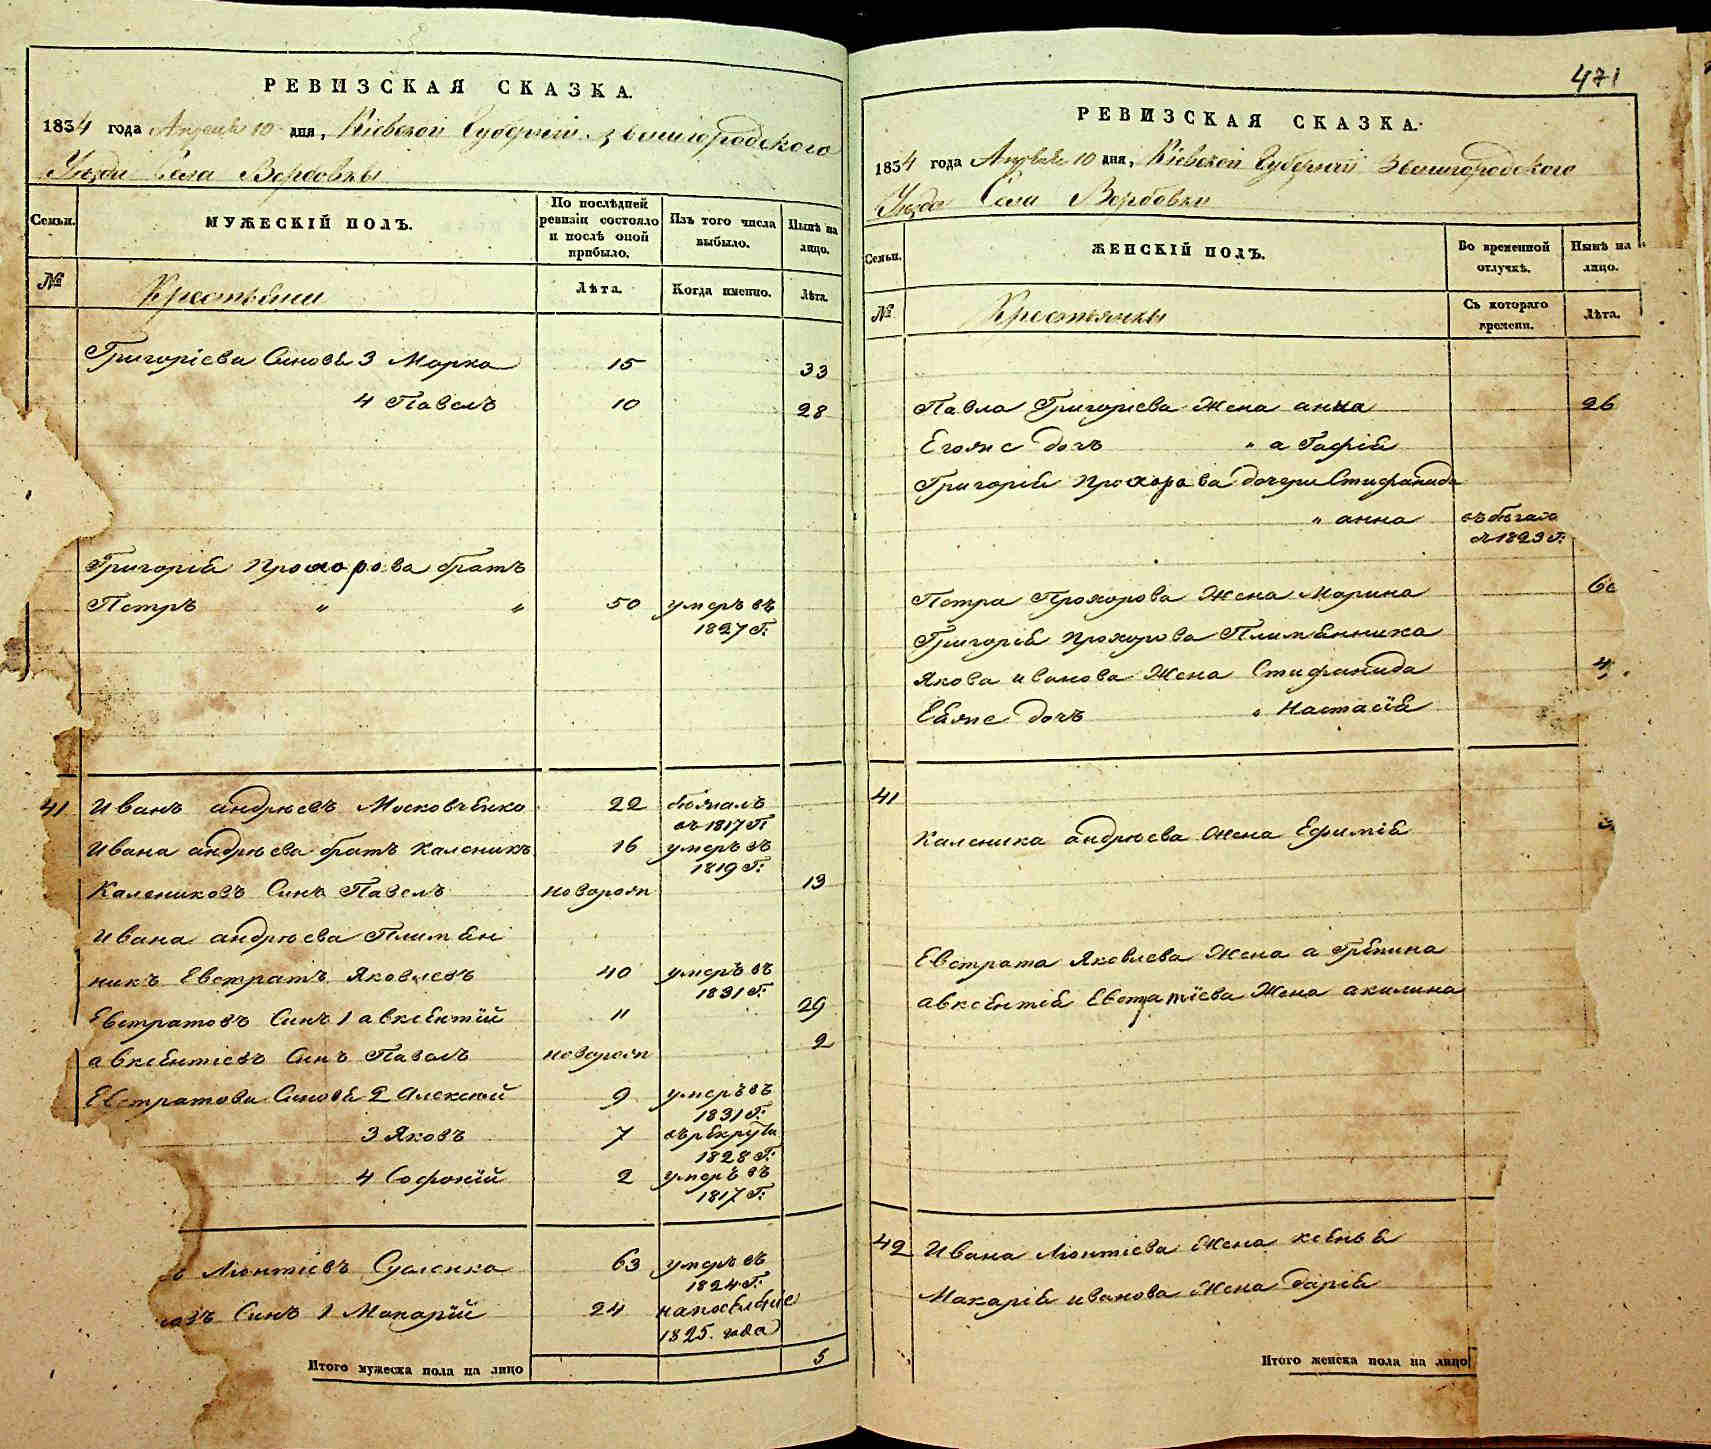 РЕВИЗСКАЯ СКАЗКА.
1834 года Апреля 10 дня, Кіевской Губерніи Звенигородского
Уезда Села Вербовки
Семьи.
МУЖЕСКІЙ ПОЛЪ.
По послѣдней ревизіи состояло и послѣ оной прибыло.
Изъ того числа выбыло.
Нынѣ на лицо.
№
Крестьяни
Лѣта.
Когда именно.
Лѣта.
Григоріева Синовѣ 3 Марко 15 33
4 Павелъ 10 28
Григорія Прохорова братъ
Петръ " " 50 умеръ въ
1827 Г:
41 Иванъ андреевъ Московченко 22 бежалъ
въ 1817 Г:
Ивана андреева братъ Каленикъ 16 умеръ въ
1819 Г:
Калениковъ Синъ Павелъ новорож 13
Ивана андреева Плимен
никъ Евстратъ Яковлевъ 40 умеръ въ
1831 Г:
Евстратовъ Синъ 1 авксентій 11 29
авксентіевъ Синъ Павелъ новорож 2
Евстратови Синовѣ 2 Алексей 9 умеръ въ
1831 Г:
3 Яковъ 7 въ рекруты
1828 Г:
4 Софоній 2 умеръ въ
1817 Г:
Люнтіевъ 63 умеръ въ
1824 Г:
Синъ 1 Макарій 24 на поселеніе
1825. года
Итого мужеска пола на лицо 5
471
РЕВИЗСКАЯ СКАЗКА.
1834 года Апреля 10 дня, Кіевской Губерніи Звенигородского
Уезда Села Вербовки
Семьи.
ЖЕНСКІЙ ПОЛЪ.
Во временной отлучкѣ.
Нынѣ на лицо.
№
Крестьянки
Съ котораго времени.
Лѣта.
Павла Григоріева Жена анна 26
Егояже дочъ " а Гафія
Григорія Прохорова дочери Стифанида
" анна въ бегахъ
съ 1823 Г:
Петра Прохорова Жена Марина
Григорія Прохорова Плименника
Якова иванова Жена Стифанида
Еяже дочъ " Настасія
41
Каленика андреева Жена Ефимія
Евстрата Яковлева Жена а Грепина
авксентія Евстратіева Жена акилина
42 Ивана Люнтіева Жена
Макарія иванова Жена дарія
Итого женска пола на лицо